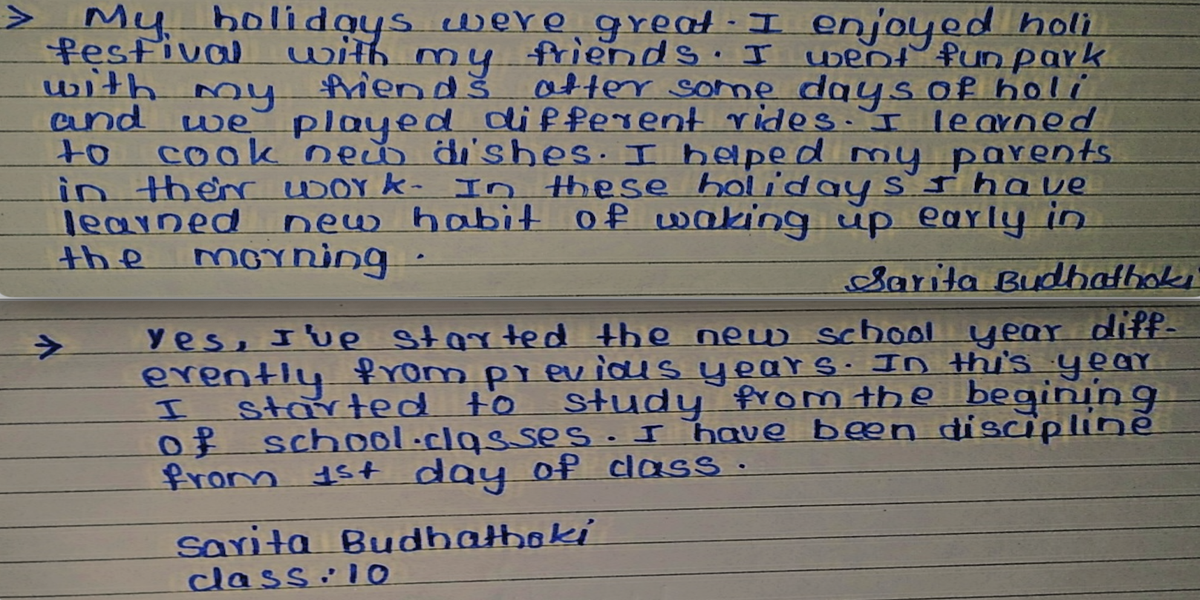 > My holidays were great. I enjoyed holi
festival with my friends. I went fun park
with my friends after some days of holi
and we played different rides. I learned
to cook new dishes. I helped my parents
in their work. In these holidays I have
learned new habit of waking up early in
the morning.
Sarita Budhathoki
→ Yes, I've started the new school year diff-
erently from previous years. In this year
I started to study from the begining
of school.classes. I have been discipline
from 1st day of class.
Sarita Budhathoki
class:10